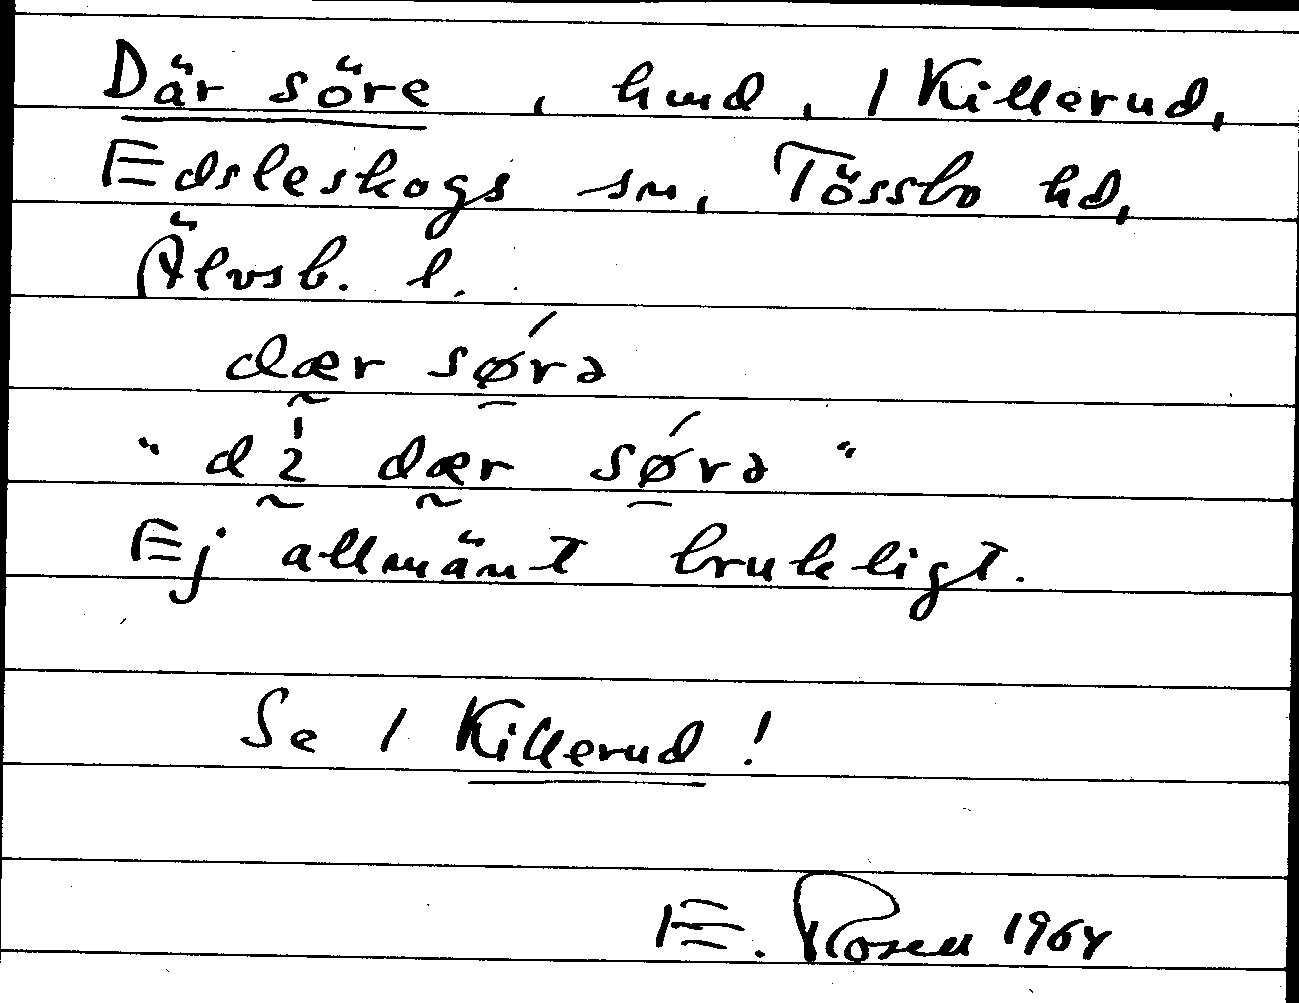 Där söre, hmd, 1 Killerud,
Edsleskogs sn, Tössbo hd,
Älvsb. l.
dær sǿ̱rə
"dı̰ dæ̰r sǿ̱rə"
Ej allmänt brukligt.
Se 1 Killerud!
E. Rosell 1964